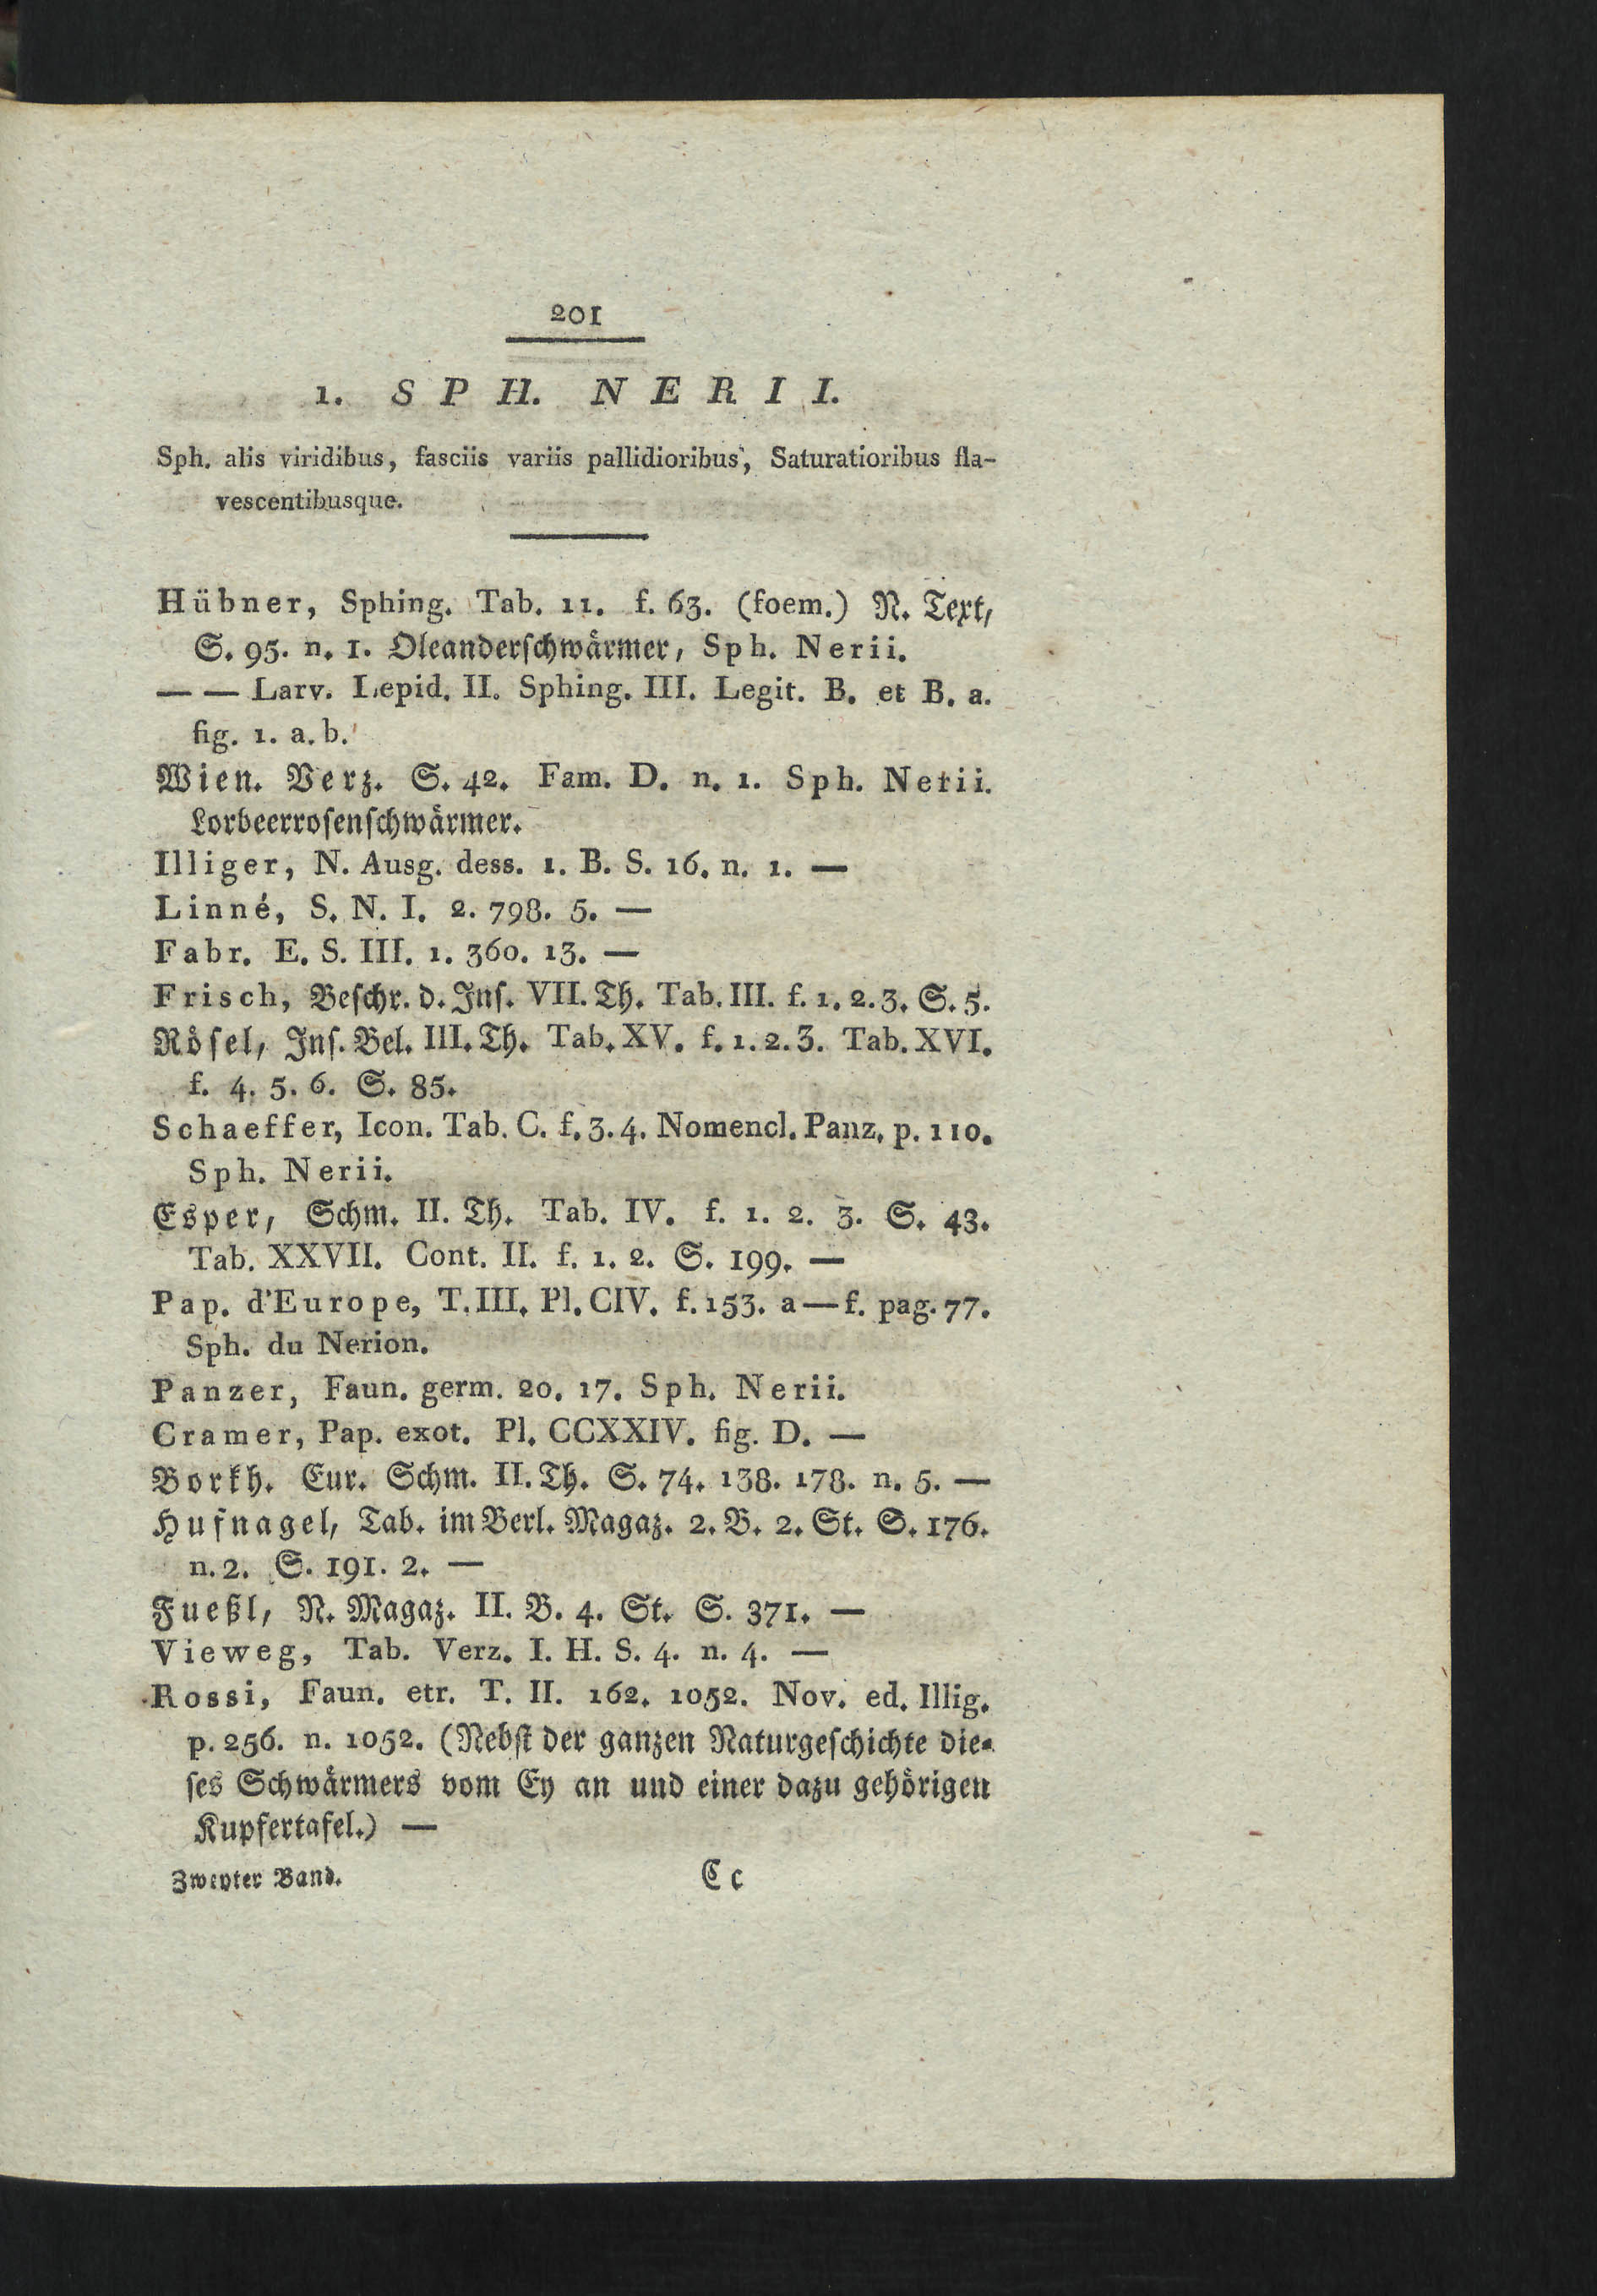 201
1. SPH. NERII.
Sph. alis viridibus, fasciis variis pallidioribus, Saturatioribus fla-
vescentibusque.
Hübner, Sphing. Tab. 11. f. 63. (foem.) N. Text,
S. 95. n. 1. Oleanderſchwärmer, Sph. Nerii.
— — Larv. Lepid. II. Sphing. III. Legit. B. et B. a.
fig. 1. a. b.
Wien. Verz. S. 42. Fam. D. n. 1. Sph. Nerii.
Lorbeerroſenſchwärmer.
Illiger, N. Ausg. dess. 1. B. S. 16. n. 1. —
Linné, S. N. I. 2. 798. 5. —
Fabr. E. S. III. 1. 360. 13. —
Frisch, Beſchr. d. Inſ. VII. Th. Tab. III. f. 1. 2. 3. S. 5.
Röſel, Inſ. Bel. III. Th. Tab. XV. f. 1. 2. 3. Tab. XVI.
f. 4. 5. 6. S. 85.
Schaeffer, Icon. Tab. C. f. 3. 4. Nomencl. Panz. p. 110.
Sph. Nerii.
Esper, Schm. II. Th. Tab. IV. f. 1. 2. 3. S. 43.
Tab. XXVII. Cont. II. f. 1. 2. S. 199. —
Pap. d'Europe, T. III. Pl. CIV. f. 153. a—f. pag. 77.
Sph. du Nerion.
Panzer, Faun. germ. 20. 17. Sph. Nerii.
Cramer, Pap. exot. Pl. CCXXIV. fig. D. —
Borkh. Eur. Schm. II. Th. S. 74. 138. 178. n. 5. —
Hufnagel, Tab. im Berl. Magaz. 2. B. 2. St. S. 176.
n. 2. S. 191. 2. —
Fueßl, N. Magaz. II. B. 4. St. S. 371. —
Vieweg, Tab. Verz. I. H. S. 4. n. 4. —
Rossi, Faun. etr. T. II. 162. 1052. Nov. ed. Illig.
p. 256. n. 1052. (Nebſt der ganzen Naturgeſchichte die-
ſes Schwärmers vom Ey an und einer dazu gehörigen
Kupfertafel.) —
Zweyter Band. Cc